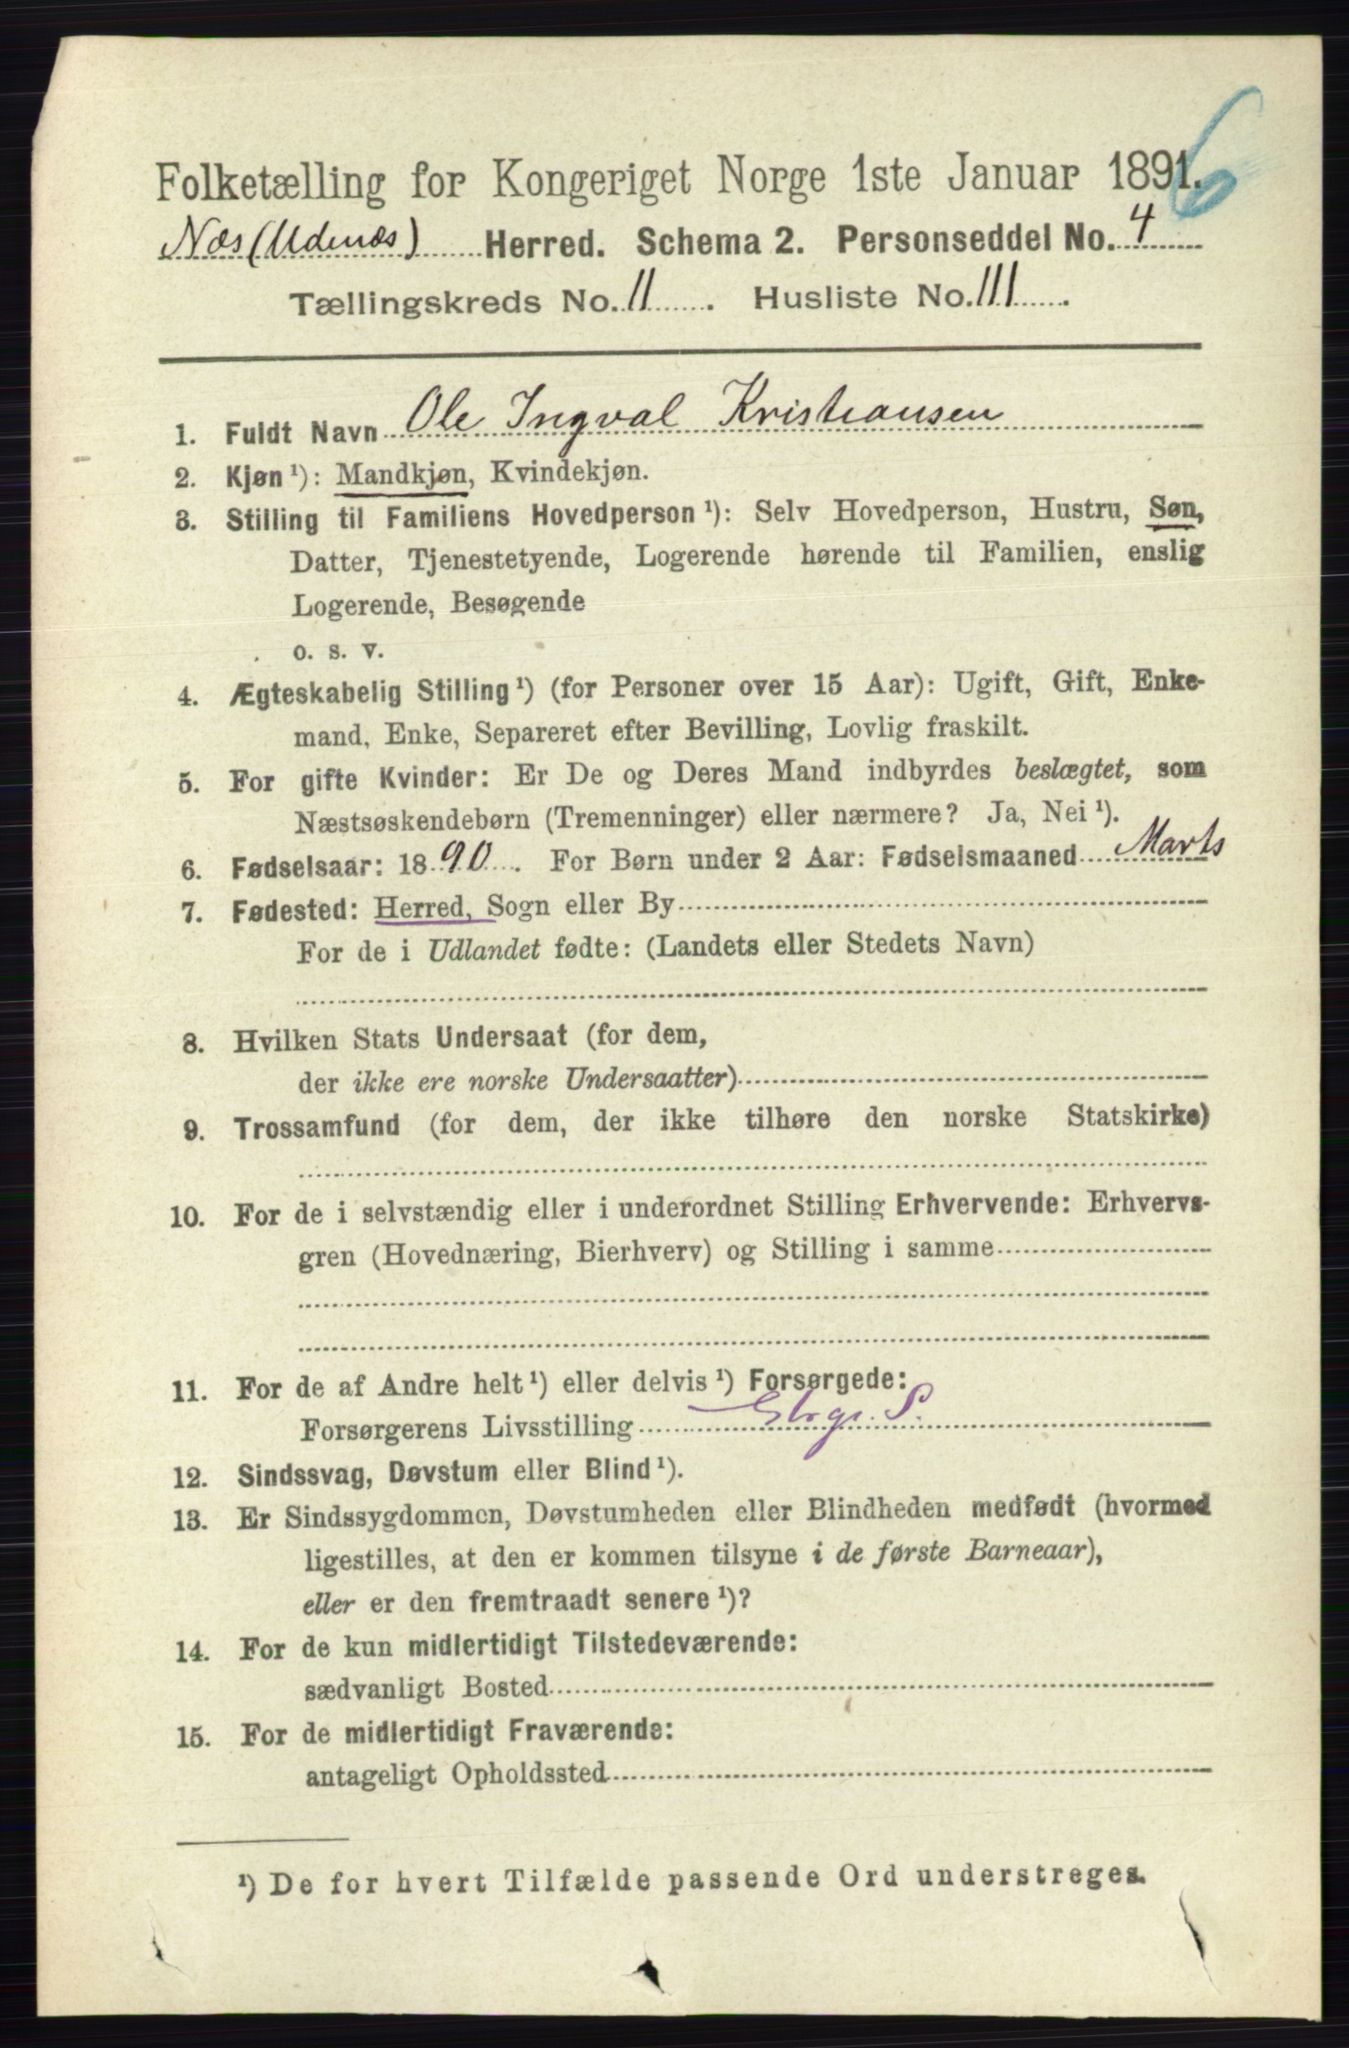 6
Folketælling for Kongeriget Norge 1ste Januar 1891.
Næs (Udenæs) Herred. Schema 2. Personseddel No. 4
Tællingskreds No. 11. Husliste No. 111.
1. Fuldt Navn Ole Ingval Kristiansen
2. Kjøn ¹): Mandkjøn, Kvindekjøn.
3. Stilling til Familiens Hovedperson ¹): Selv Hovedperson, Hustru, Søn,
Datter, Tjenestetyende, Logerende hørende til Familien, enslig
Logerende, Besøgende
o. s. v.
4. Ægteskabelig Stilling ¹) (for Personer over 15 Aar): Ugift, Gift, Enke-
mand, Enke, Separeret efter Bevilling, Lovlig fraskilt.
5. For gifte Kvinder: Er De og Deres Mand indbyrdes beslægtet, som
Næstsøskendebørn (Tremenninger) eller nærmere? Ja, Nei ¹).
6. Fødselsaar: 1890. For Børn under 2 Aar: Fødselsmaaned Marts
7. Fødested: Herred, Sogn eller By
For de i Udlandet fødte: (Landets eller Stedets Navn)
8. Hvilken Stats Undersaat (for dem,
der ikke ere norske Undersaatter)
9. Trossamfund (for dem, der ikke tilhøre den norske Statskirke)
10. For de i selvstændig eller i underordnet Stilling Erhvervende: Erhvervs-
gren (Hovednæring, Bierhverv) og Stilling i samme
11. For de af Andre helt ¹) eller delvis ¹) Forsørgede:
Forsørgerens Livsstilling
12. Sindssvag, Døvstum eller Blind ¹).
13. Er Sindssygdommen, Døvstumheden eller Blindheden medfødt (hvormed
ligestilles, at den er kommen tilsyne i de første Barneaar),
eller er den fremtraadt senere ¹)?
14. For de kun midlertidigt Tilstedeværende:
sædvanligt Bosted
15. For de midlertidigt Fraværende:
antageligt Opholdssted
¹) De for hvert Tilfælde passende Ord understreges.